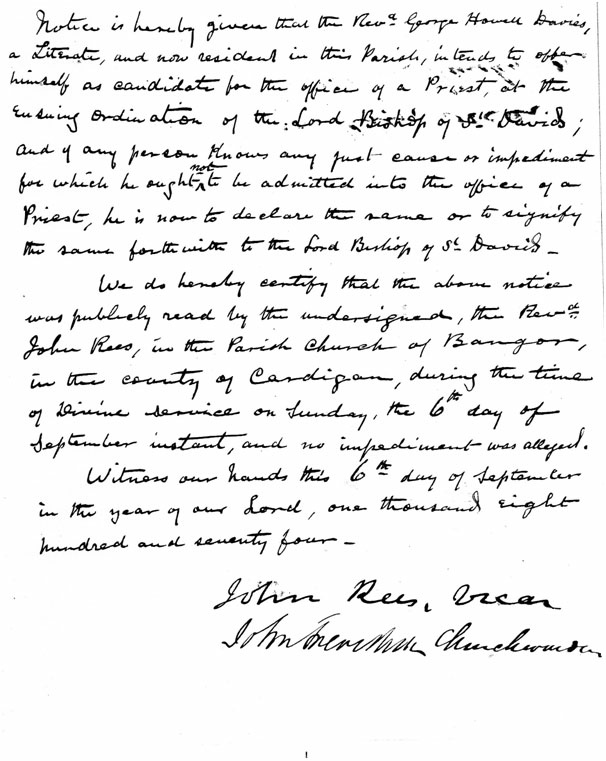 Notice is hereby given that the Revd George Howell Davies,
a Literate, and now resident in this Parish, intends to offer
himself as candidate for the office of a Priest, at the
Ensuing Ordination of the Lord Bishop of St Davids;
and if any person knows any just cause or impediment
for which he ought not to be admitted into the office of a
Priest, he is now to declare the same or to signify
the same forthwith to the Lord Bishop of St Davids—
We do hereby certify that the above notice
was publicly read by the undersigned, the Revd
John Rees, in the Parish Church of Bangor,
in the county of Cardigan, during the time
of Divine Service on Sunday, the 6th day of
September instant, and no impediment was alleged.
Witness our hands this 6th day of September
in the year of our Lord, one thousand eight
hundred and seventy four—
John Rees, Vicar
John Churchwarden